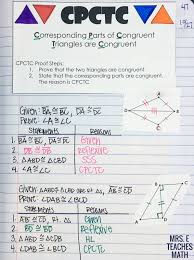 CPCTC
47
Corresponding Parts of Congruent
Triangles are Congruent
CPCTC Proof Steps:
1. Prove that the two triangles are congruent
2. State that the corresponding parts are congruent.
The reason is CPCTC
Given: BA ≅ BC, DA ≅ DC
Prove: ∠A ≅ ∠C
Statements Reasons
1. BA ≅ BC, DA ≅ DC Given
2. DB ≅ DB Reflexive
3. △ABD ≅ △CBD SSS
4. ∠A ≅ ∠C CPCTC
Prove: ∠DAB ≅ ∠BCD
Statements Reasons
Given
2. BD ≅ BD Reflexive
3. △ABD ≅ △CDB HL
CPCTC
MRS. E
TEACHES
MATH